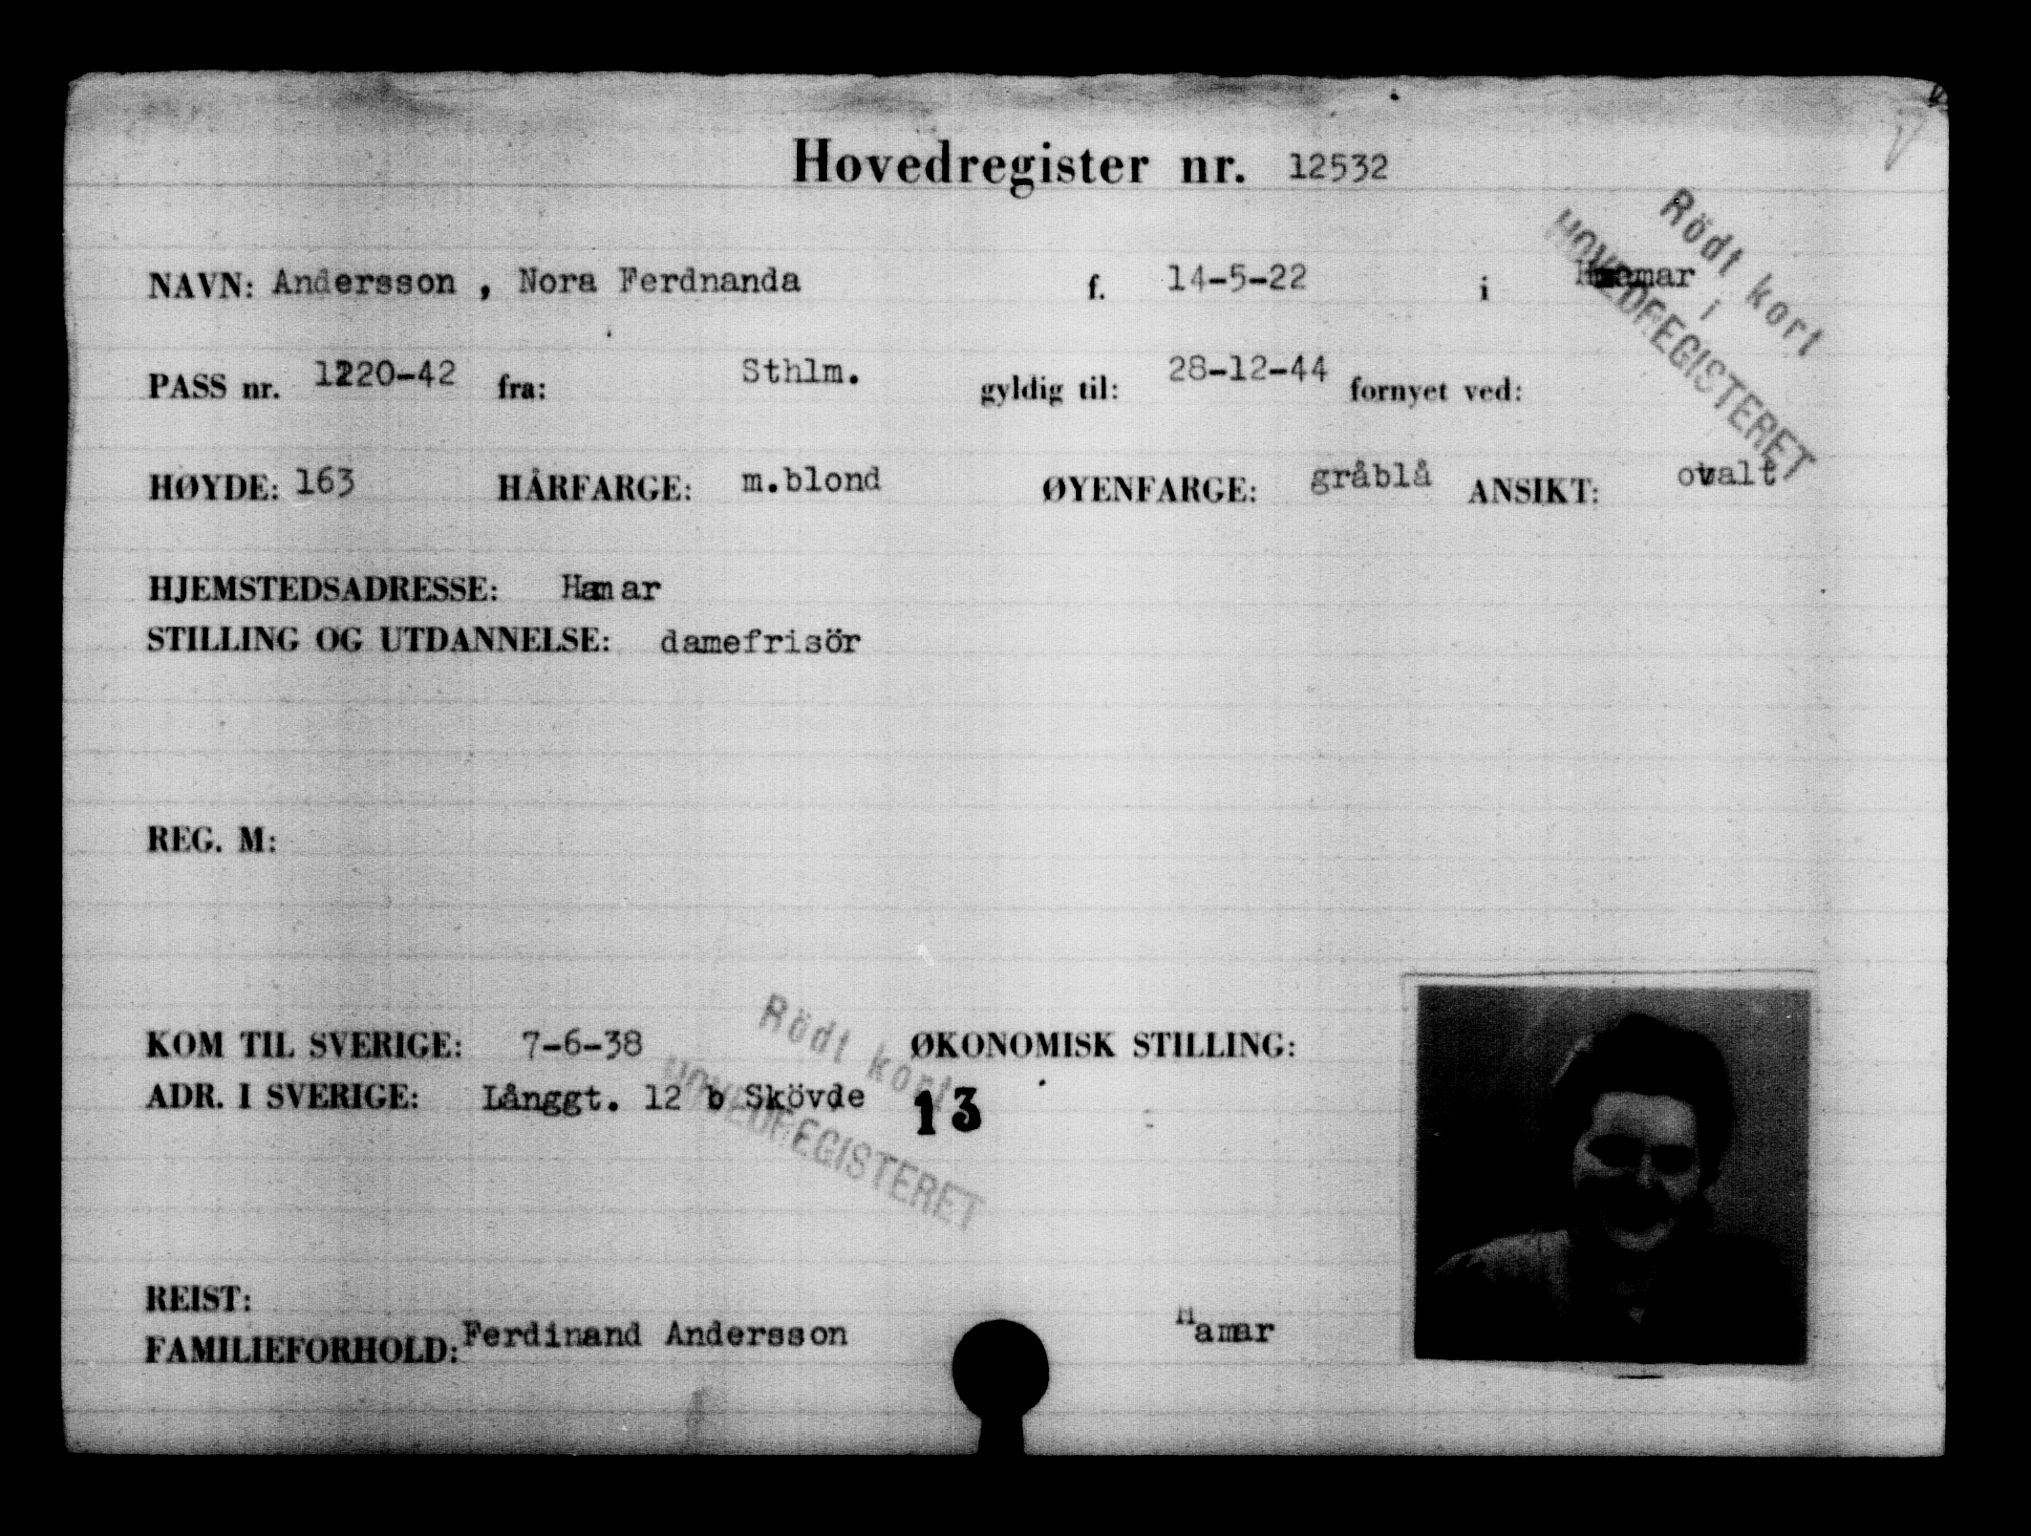 Hovedregister nr. 12532
Rödt kort
i
HOVEDREGISTERET
NAVN: Andersson , Nora Ferdnanda f. 14-5-22 i Hamar
PASS nr. 1220-42 fra: Sthlm. gyldig til: 28-12-44 fornyet ved:
HØYDE: 163 HÅRFARGE: m.blond ØYENFARGE: gråblå ANSIKT: ovalt
HJEMSTEDSADRESSE: Hamar
STILLING OG UTDANNELSE: damefrisör
REG. M:
KOM TIL SVERIGE: 7-6-38 ØKONOMISK STILLING:
ADR. I SVERIGE: Långgt. 12 b Skövde 13
Rödt kort
HOVEDREGISTERET
REIST:
FAMILIEFORHOLD: Ferdinand Andersson Hamar